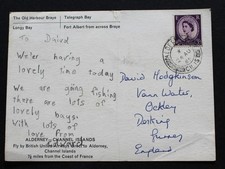 The Old Harbour Braye
Telegraph Bay
Longy Bay
Fort Albert from across Braye
To David
We'er having a
lovely time today
we are going fishing
there are lots of
lovely bays.
With lots of
love from
Edward
David Hodgkinson
Vann Water,
Ockley
Dorking
Surrey
England
ALDERNEY - CHANNEL ISLANDS
Fly by British United Airways to Alderney,
Channel Islands
8½ miles from the Coast of France